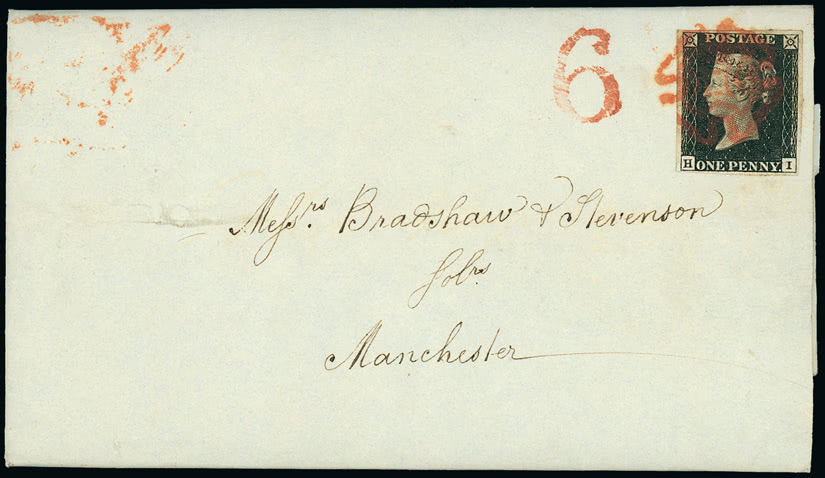 6
POSTAGE
H ONE PENNY. I
Messrs. Bradshaw & Stevenson
Solrs
Manchester